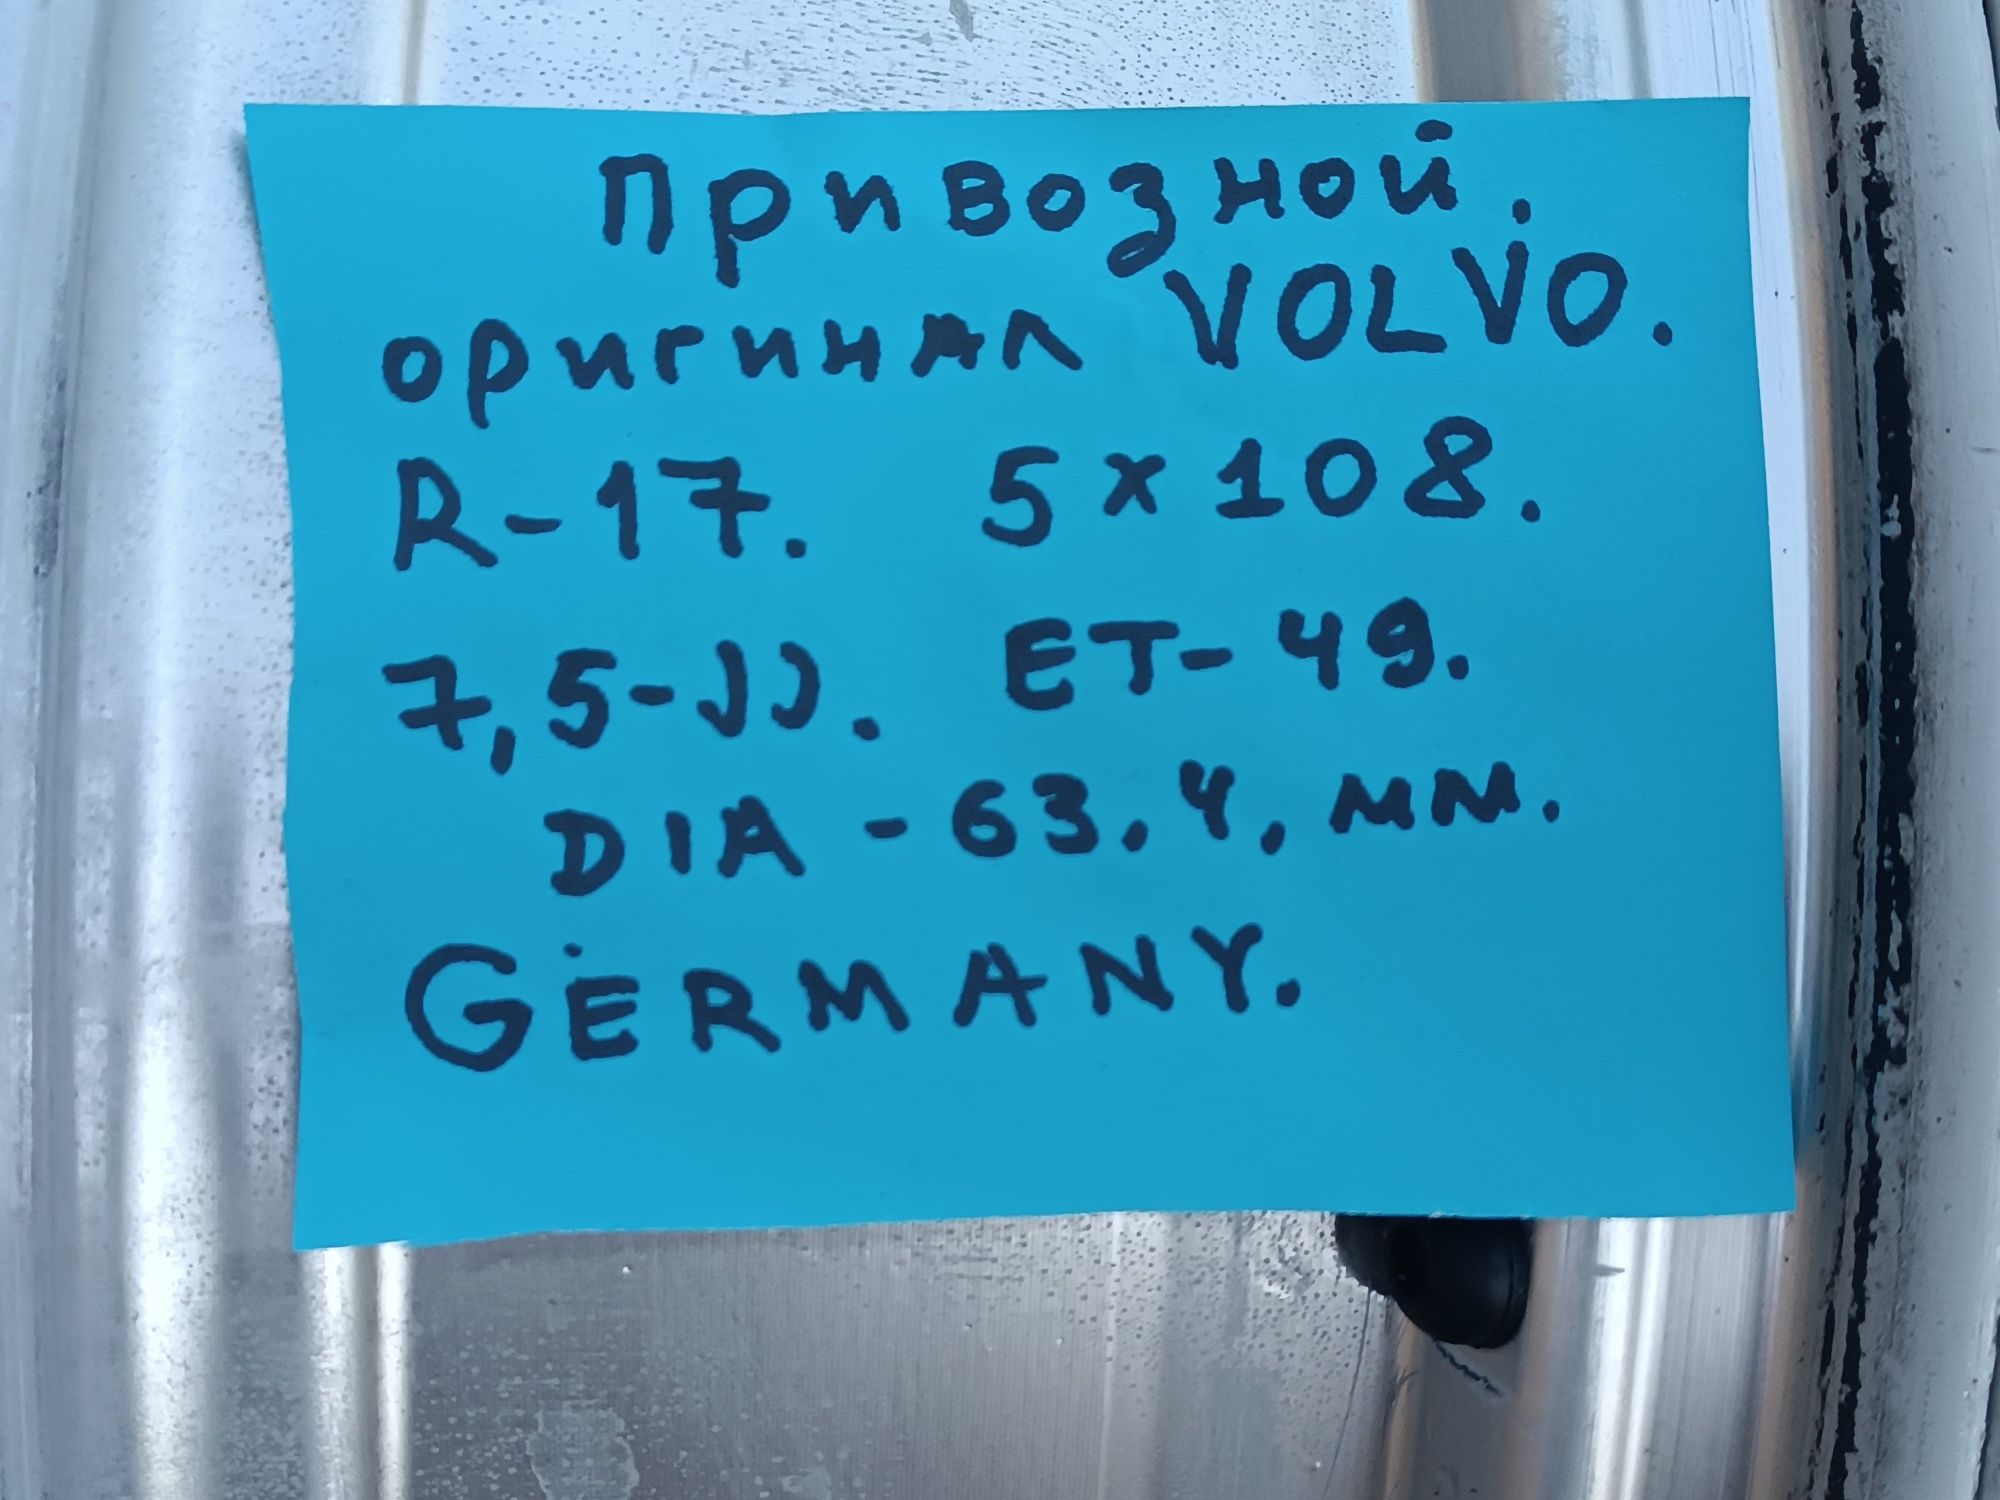 Привозной.
оригинал VOLVO.
R-17. 5x108.
7,5-JJ. ET-49.
DIA-63.4, мм.
GERMANY.